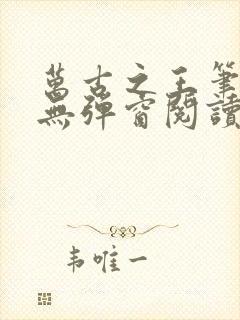 萬古之王筆
無彈窗閱讀
韦唯一